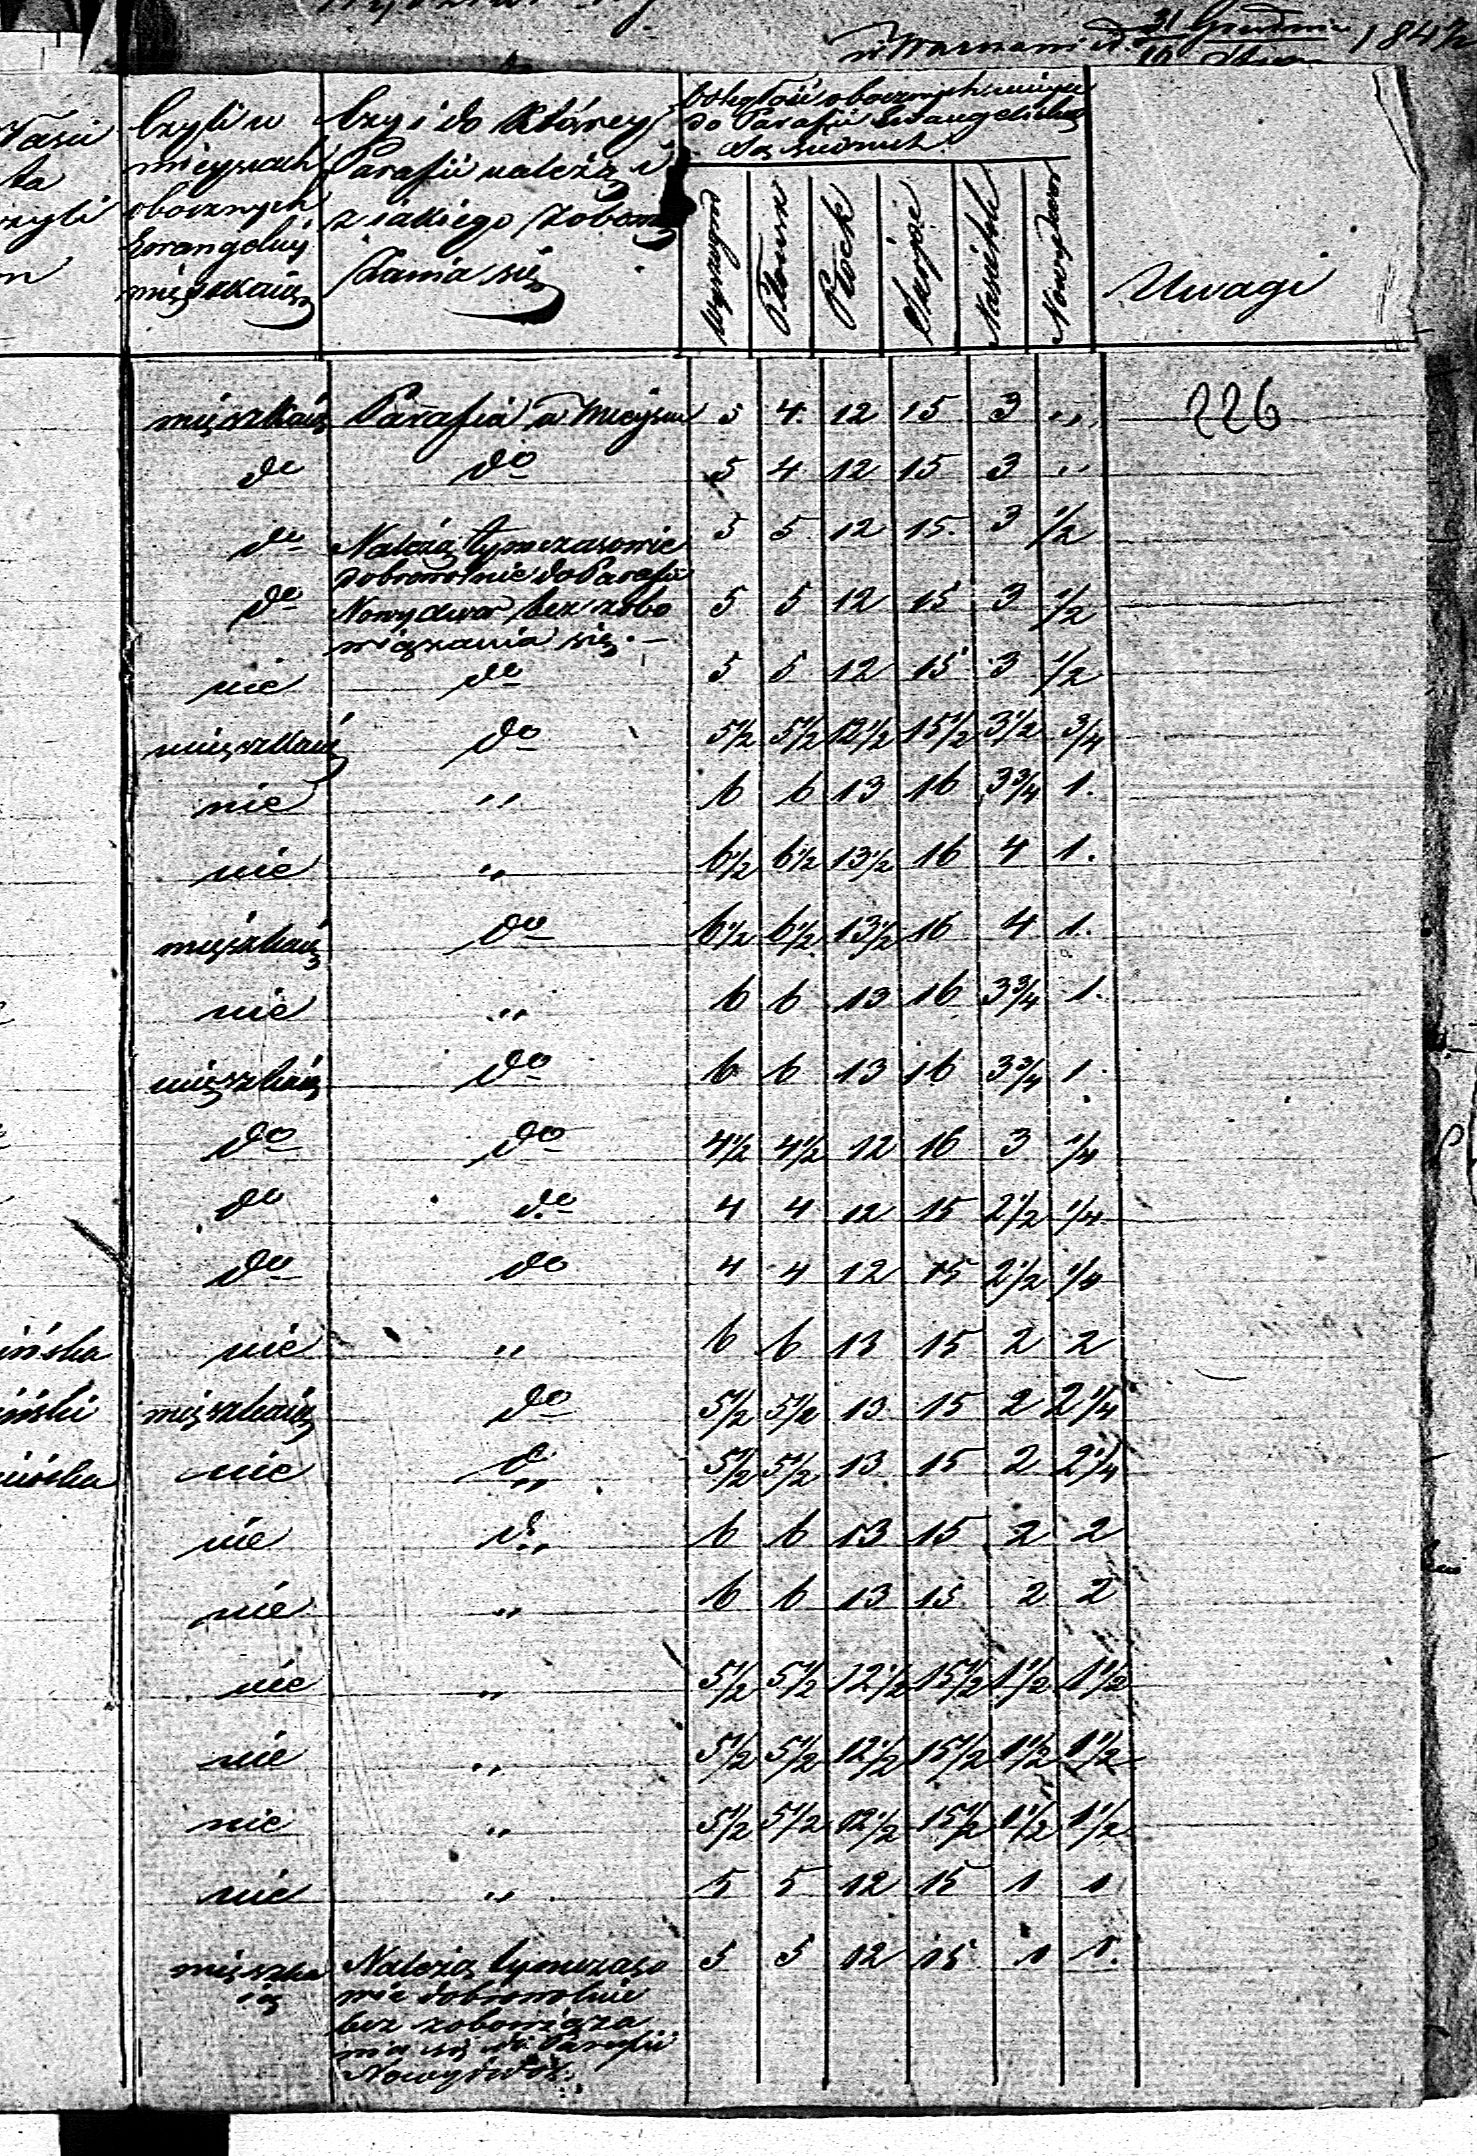 w Warszawie d. 31 Grudnia 184
Czyli w
mieyscach
obocznych
Ewangelicy
mięszkaią
Czy i do Którey
Parafii należą i
z iakiego zobowią
zania się
Odległość obocznych miejsc
do Parafii Ewangelickiey
Sąsiednich
Wyszogród
Płońsk
Płock
Nasielsk
Nowydwór
Uwagi
226
mięszkaią Parafia w Mieyscu 5 4 12 15 3 ,,
do do 5 4 12 15 3 ,,
do Należą tymczasowie 5 5 12 15 3 1/2
dobrowolnie do Parafii
do Nowydwór bez zobo 5 5 12 15 3 1/2
wiązania się. —
nie do 5 5 12 15 3 1/2
mięszkaią do 5 1/2 5 1/2 12 1/2 15 1/2 3 1/2 3/4
nie ,, 6 6 13 16 3 3/4 1.
nie ,, 6 1/2 6 1/2 13 1/2 16 4 1.
mięszkaią do 6 1/2 6 1/2 13 1/2 16 4 1.
nie ,, 6 6 13 16 3 3/4 1.
mięszkaią do 6 6 13 16 3 3/4 1.
do do 4 1/2 4 1/2 12 16 3 1/4
do do 4 4 12 15 2 1/2 1/4
do do 4 4 12 15 2 1/2 1/4
ińska nie ,, 6 6 13 15 2 2
iński mięszkaią do 5 1/2 5 1/2 13 15 2 2 1/4
ińska nie ,, 5 1/2 5 1/2 13 15 2 2 1/4
nie ,, 6 6 13 15 2 2
nie ,, 6 6 13 15 2 2
nie ,, 5 1/2 5 1/2 12 1/2 15 1/2 1 1/2 1 1/2
nie ,, 5 1/2 5 1/2 12 1/2 15 1/2 1 1/2 1 1/2
nie ,, 5 1/2 5 1/2 12 1/2 15 1/2 1 1/2 1 1/2
nie ,, 5 5 12 15 1 1
mięszka Należą tymczaso 5 5 12 15 1 1.
ią wie dobrowolnie
bez zobowiąza
nia się do Parafii
Nowydwór.